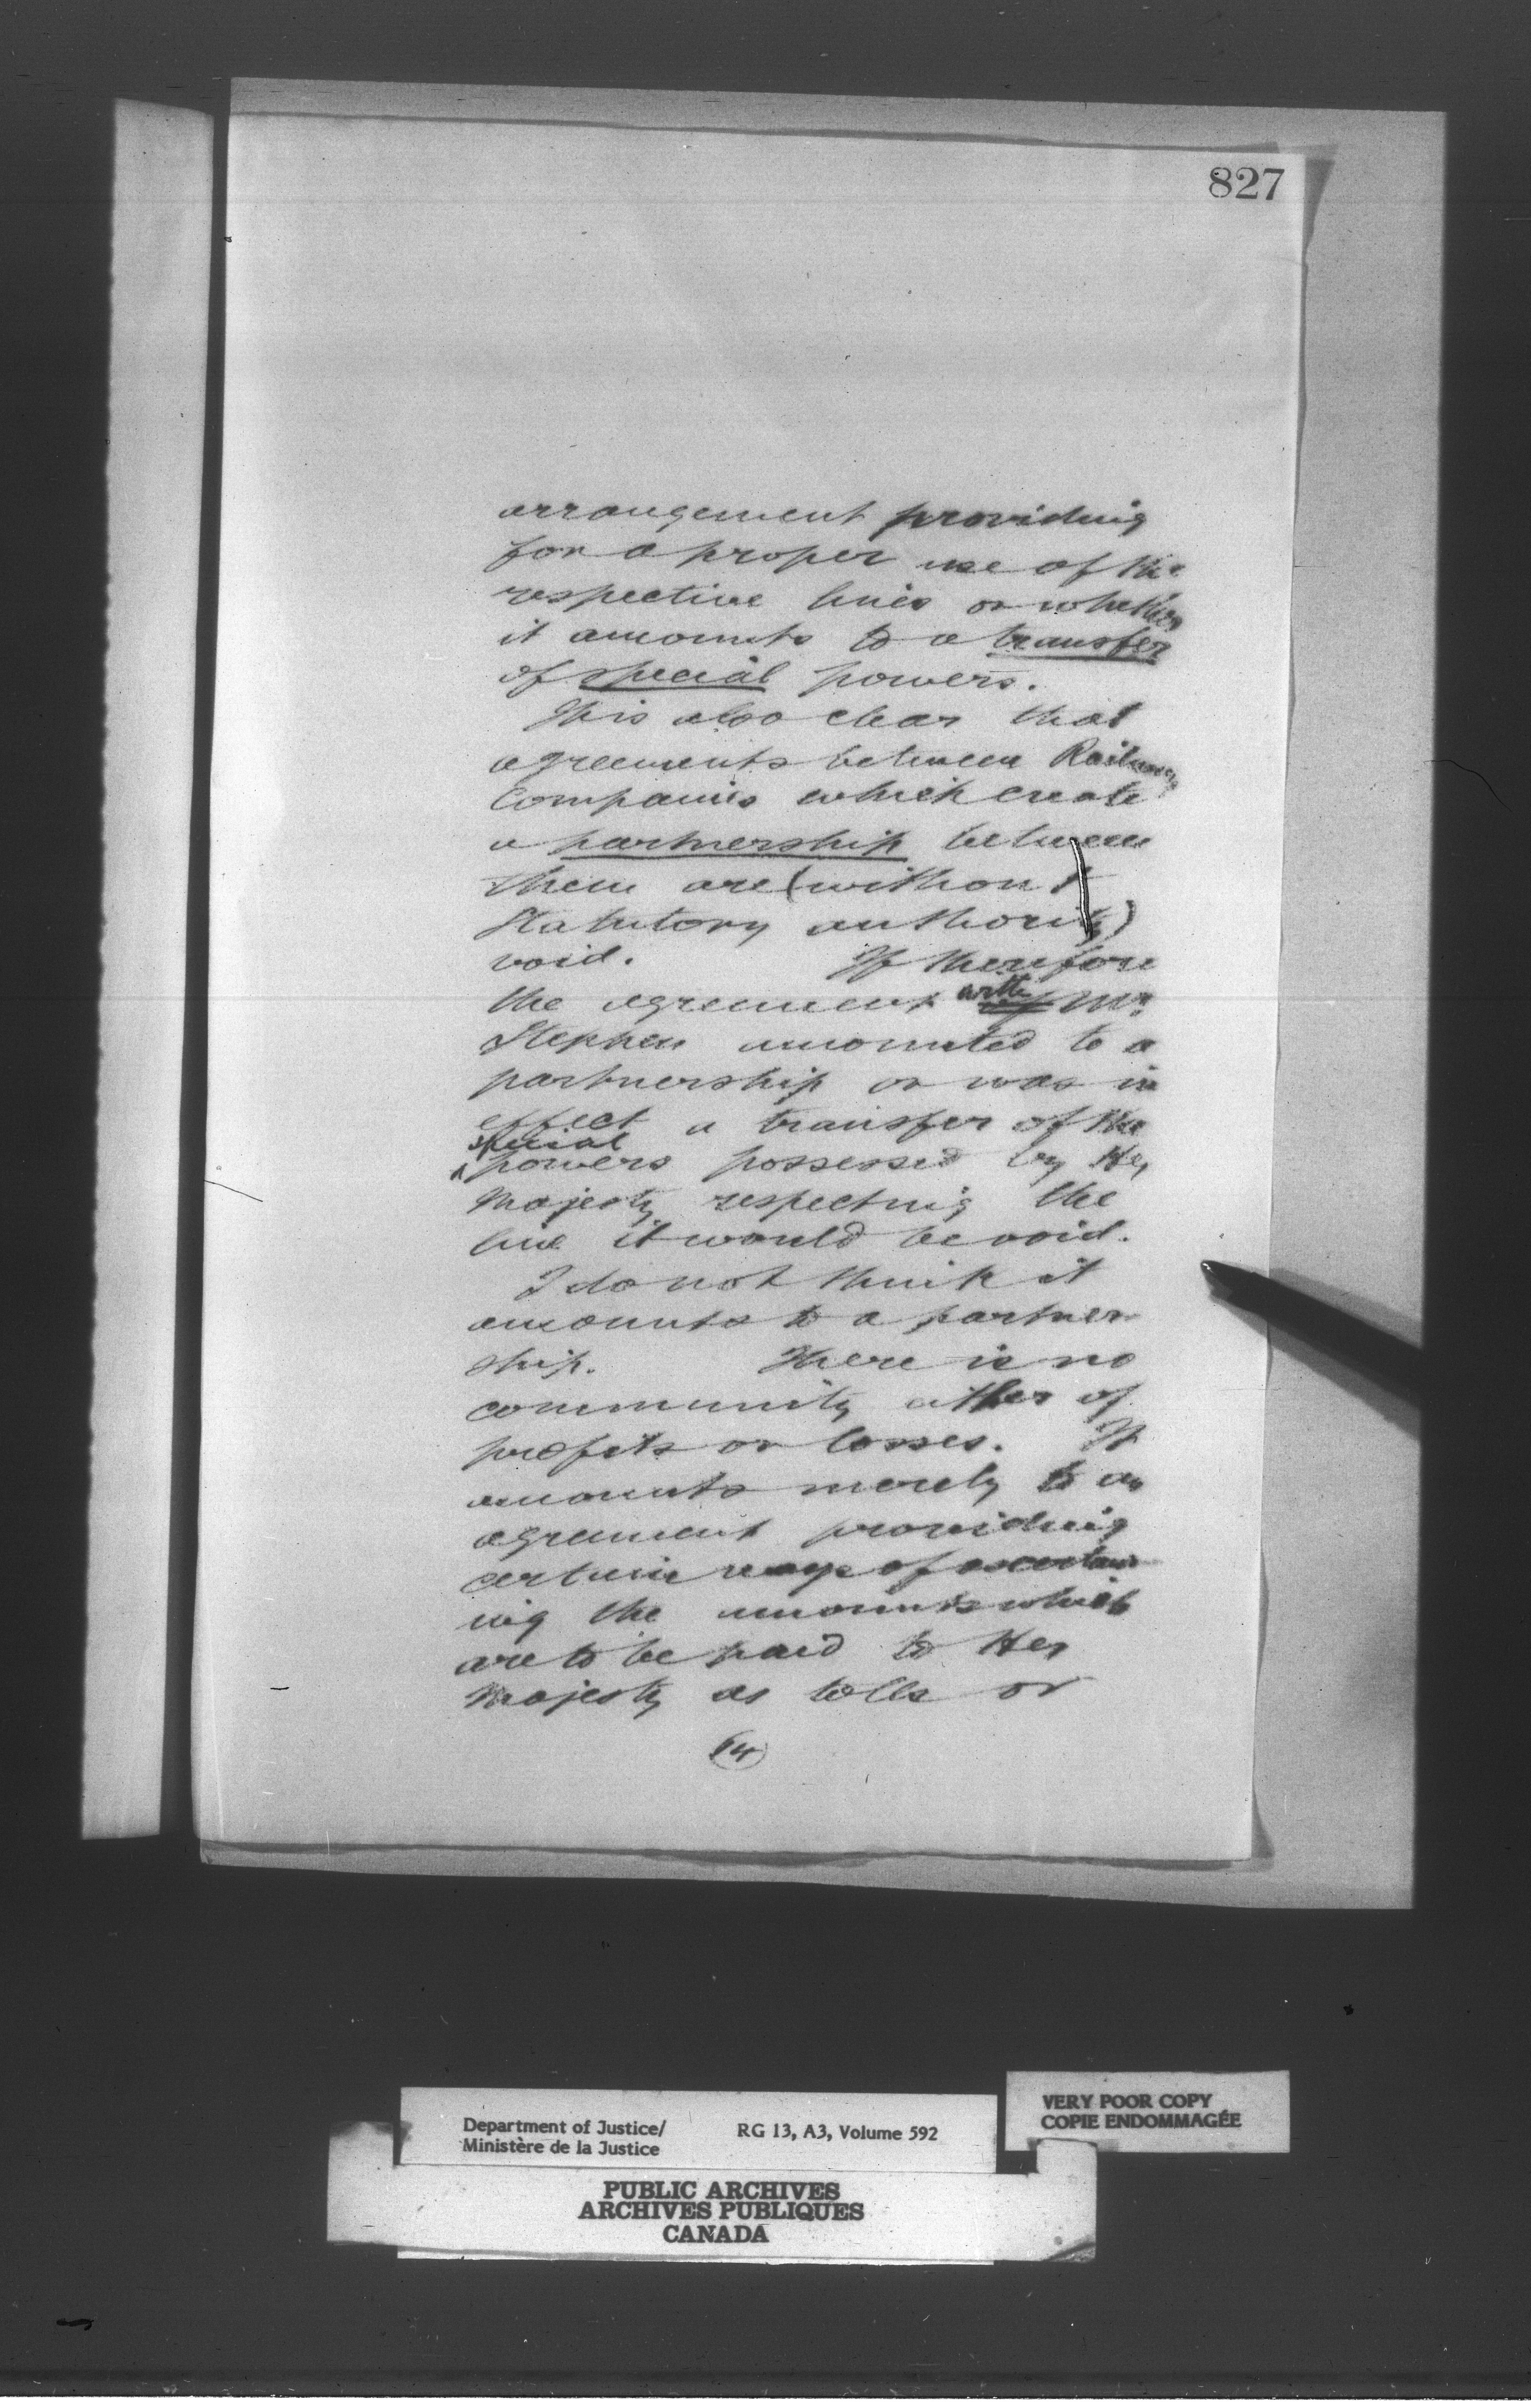 827
arrangement providing
for a proper use of the
respective lines or whether
it amounts to a transfer
of special powers.
It is also clear that
agreements between Railway
Companies which create
a partnership between
them are (without
Statutory authority)
void. If therefore
the agreement with Mr.
Stephen amounted to a
partnership or was in
effect a transfer of the
special
powers possessed by Her
Majesty respecting the
line it would be void.
I do not think it
amounts to a partner
ship. There is no
community either of
profits or losses. It
amounts merely to an
agreement providing
certain ways of ascertain
ing the amounts which
are to be paid to Her
Majesty as tolls or
14
Department of Justice/
Ministère de la Justice
RG 13, A3, Volume 592
VERY POOR COPY
COPIE ENDOMMAGÉE
PUBLIC ARCHIVES
ARCHIVES PUBLIQUES
CANADA